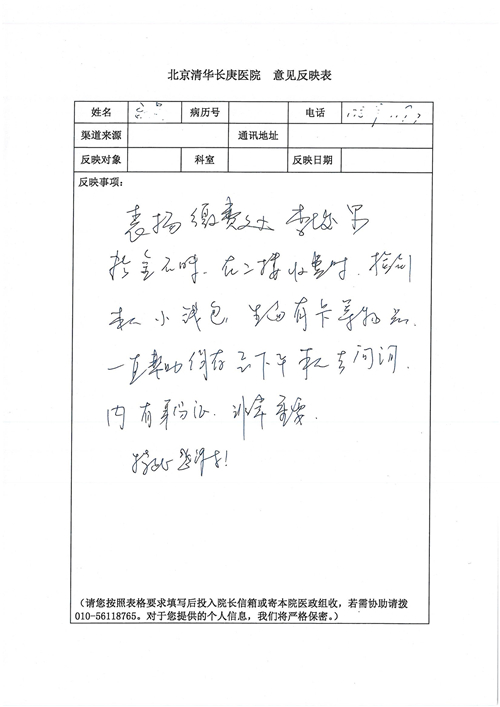 北京清华长庚医院 意见反映表
姓名 病历号 电话
渠道来源 通讯地址
反映对象 科室 反映日期
反映事项：
表扬缴费处
拾金不昧. 在二楼收费时. 捡到
我小钱包, 里面有卡等物品.
一直帮助保存至下午我去问询.
内有身份证. 非常重要.
特此
（请您按照表格要求填写后投入院长信箱或寄本院医政组收，若需协助请拨
010-56118765。对于您提供的个人信息，我们将严格保密。）